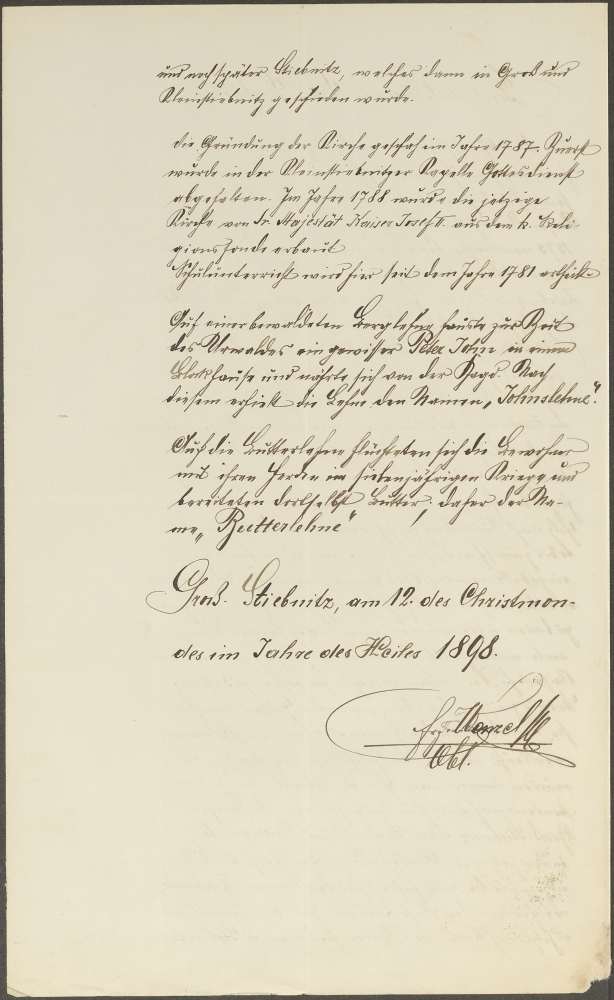 und noch später Stiebnitz, welches dann in Groß und
Kleinstiebnitz geschieden wurde.
die Gründung der Kirche geschah im Jahre 1787. Zuerst
wurde in der Kleinstiebnitzer Kapelle Gottesdienst
abgehalten. Im Jahre 1788 wurde die jetzige
Kirche von Sr. Majestät Kaiser Josef II. aus dem k. Reli-
gionsfonde erbaut
Schulunterricht wird hier seit dem Jahre 1781 ertheilt.
Auf einer bewaldeten Berglehne hauste zur Zeit
des Urwaldes ein gewisser Peter John in einem
Blockhause und nährte sich von der Jagd. Nach
diesem erhielt die Lehne den Namen „Johnslehne".
Auf die Butterlehne flüchteten sich die Bewohner
mit ihren Herden im siebenjährigen Kriege und
bereiteten dortselbst Butter, daher der Na-
me „Butterlehne"
Groß-Stiebnitz, am 12. des Christmon-
des im Jahre des Heiles 1898.
Wenzel
Obl.